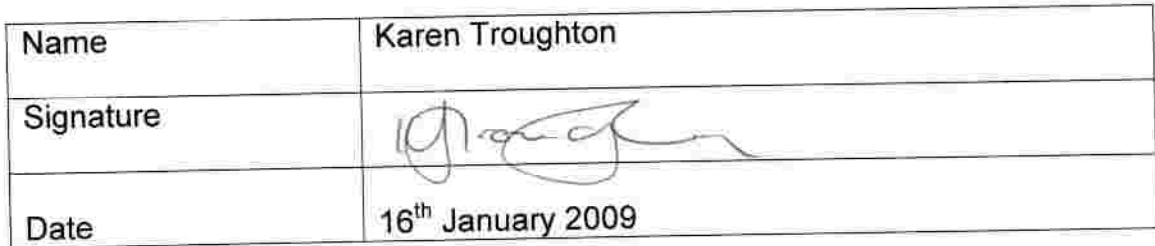 Name Karen Troughton
Signature
Date 16th January 2009